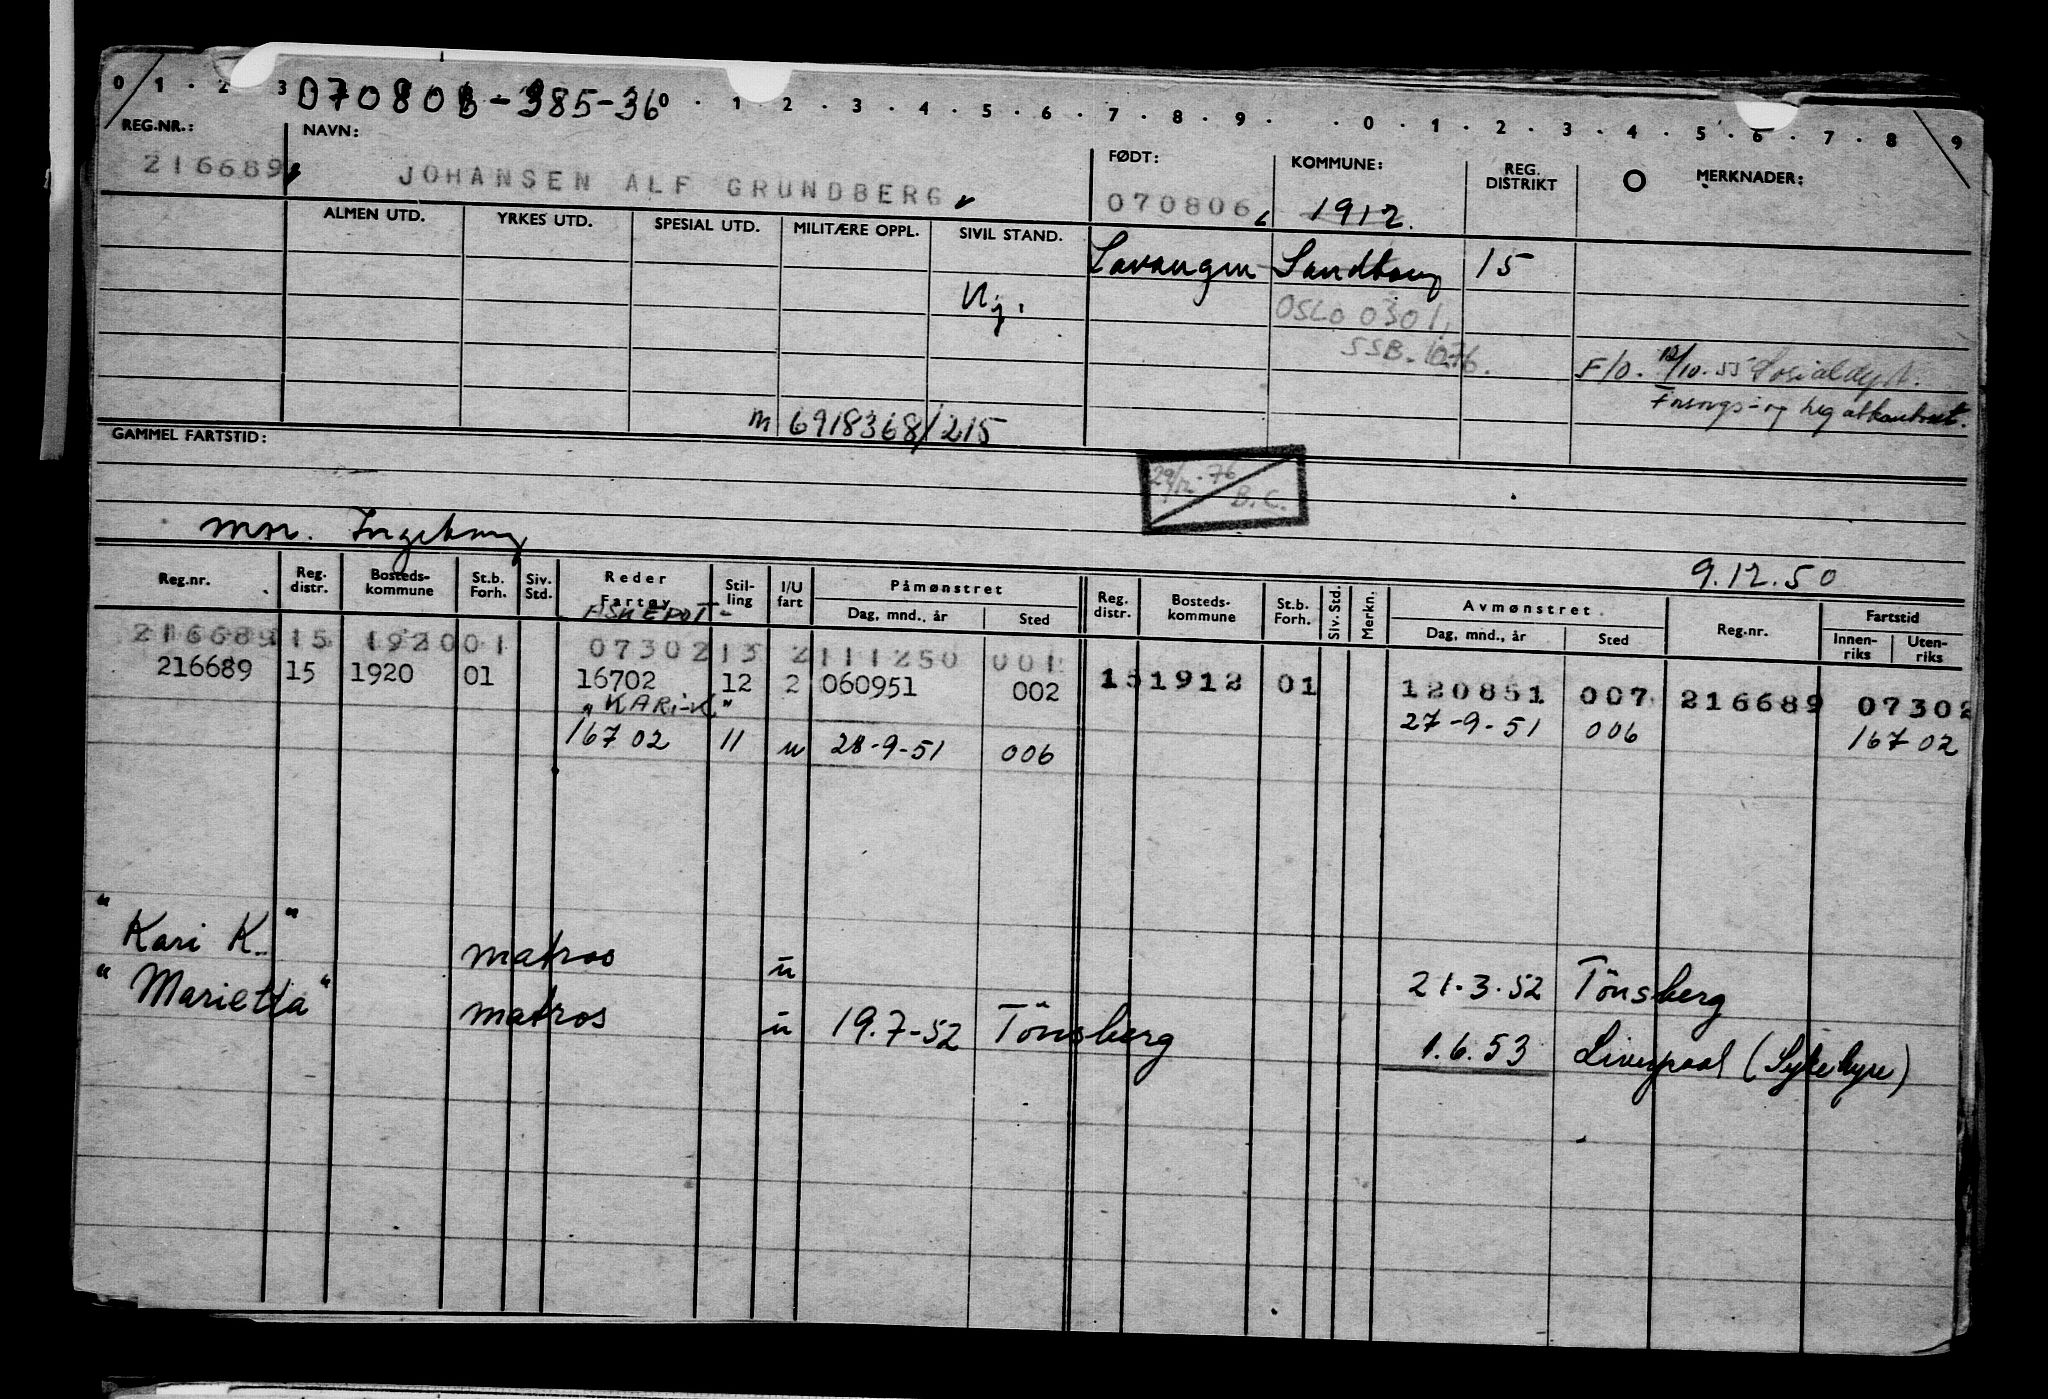 0 1 2 3 070806-385-36 0 1 2 3 4 5 6 7 8 9 0 1 2 3 4 5 6 7 8 9
REG.NR.: NAVN: FØDT: KOMMUNE: REG. DISTRIKT O MERKNADER:
216689 JOHANSEN ALF GRUNDBERG 070806 1912
ALMEN UTD. YRKES UTD. SPESIAL UTD. MILITÆRE OPPL. SIVIL STAND.
Lavangen Sandtorg 15
Uj.
OSLO 0301
SSB. 1076.
F/O. 12/10.55 Sosialdept.
m 6918368/215
GAMMEL FARTSTID:
29/12.76
B.C.
mor. Ingeborg
9.12.50
Reg.nr. Reg. distr. Bosteds-kommune St.b. Forh. Siv. Std. Reder Fartøy Stil-ling I/U fart Påmønstret Dag, mnd., år Sted Reg. distr. Bosteds-kommune St.b. Forh. Siv. Std. Merkn. Avmønstret Dag, mnd., år Sted Reg.nr. Fartstid Innen-riks Uten-riks
216689 15 1920 01 07302 13 2 111250 001 15 1912 01 120851 007 216689 07302
216689 15 1920 01 16702 12 2 060951 002 27-9-51 006 16702
"KARI-K"
16702 11 u 28-9-51 006
"Kari K." matros u 21.3.52 Tönsberg
"Marietta" matros u 19.7-52 Tönsberg 1.6.53 Liverpool (Sykehyre)